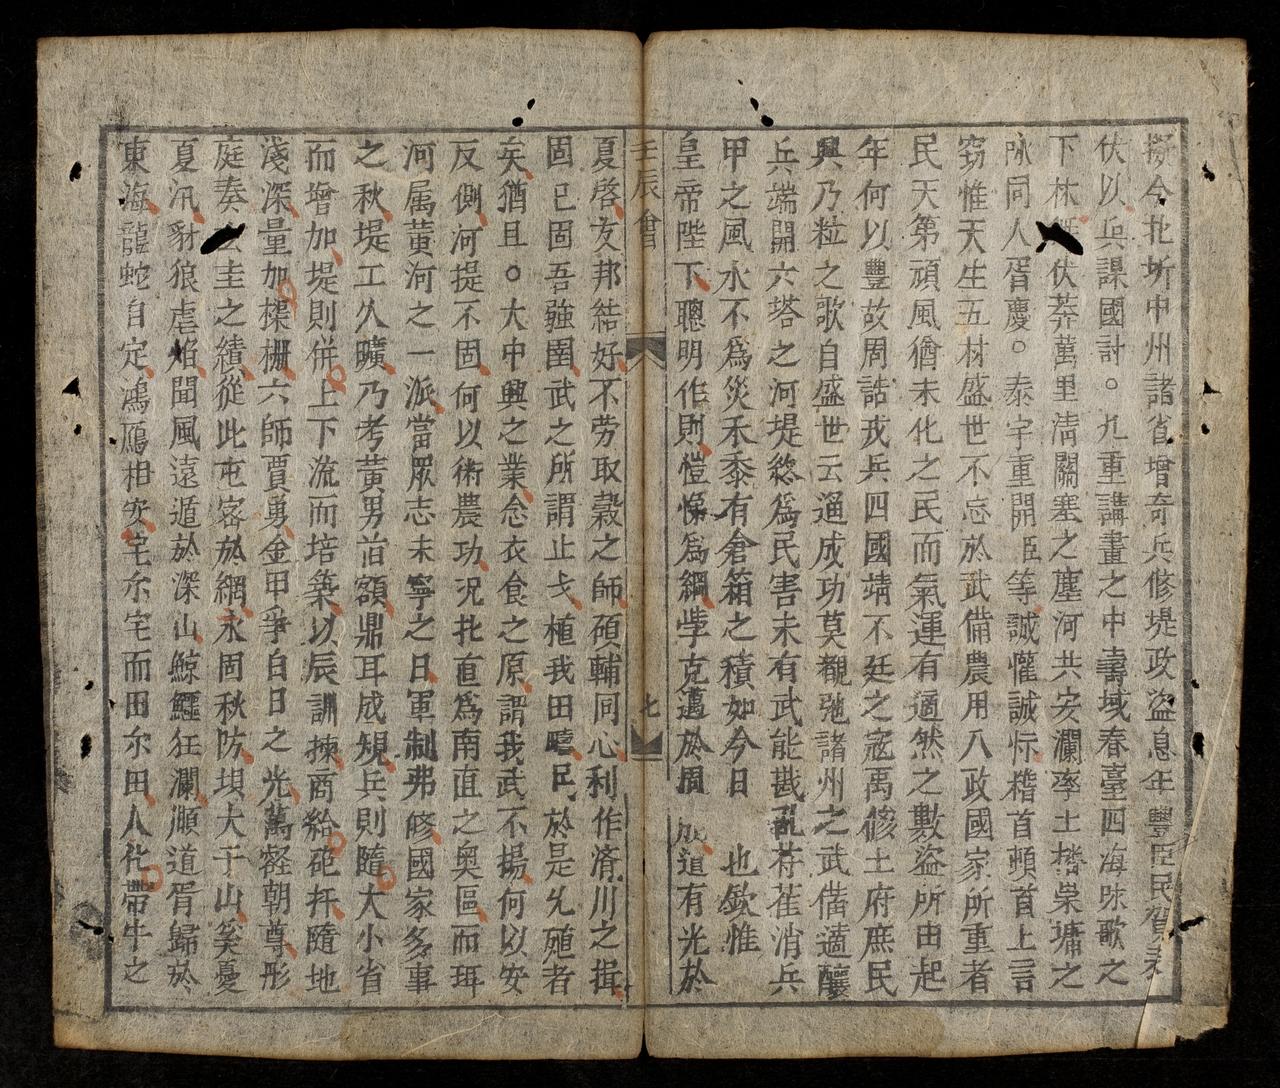 擬今北圻中州諸省增奇兵修堤政盜息年豐臣民賀表
伏以兵謀國計。九重講畫之中壽域春臺四海詠歌之
下休徵伏莽萬里清關塞之塵河共安瀾率土播崇墉之
咏同人胥慶。泰宇重開臣等誠懽誠忭稽首頓首上言
竊惟天生五材盛世不忘於武備農用八政國家所重者
民天第頑風猶未化之民而氣運有適然之數盜所由起
年何以豐故周誥戎兵四國靖不廷之寇禹修土府庶民
興乃粒之歌自盛世云遥成功莫覩弛諸州之武偹適釀
兵端開六塔之河堤恣爲民害未有武能戡亂苻萑消兵
甲之風水不爲災禾黍有倉箱之積如今日 也欽惟
皇帝陛下聰明作則愷悌爲綱學克邁於周 成道有光於
壬辰會 七
夏啓友邦結好不劳取穀之師碩輔同心利作済川之揖
固已固吾強圉武之所謂止戈植我田疇民於是乆殖者
矣猶且。大中興之業念衣食之原謂我武不揚何以安
反側河提不固何以術農功况北直爲南直之奥區而珥
河属黃河之一派當眾志未寧之日軍制弗修國家多事
之秋堤工久曠乃考黃男㳙額鼎耳成規兵則隨大小省
而增加堤則併上下流而培築以辰訓揀商給砲扞隨地
淺深量加椂栅六師賈勇金甲爭白日之光萬壑朝尊彤
庭奏玄圭之績從此屯宻於網永固秋防坝大于山奚憂
夏汛豺狼虐焰聞風遠遁於深山鯨鱷狂瀾順道胥歸於
東海龍蛇自定鴻鴈相安宅尓宅而田尓田人化帶牛之